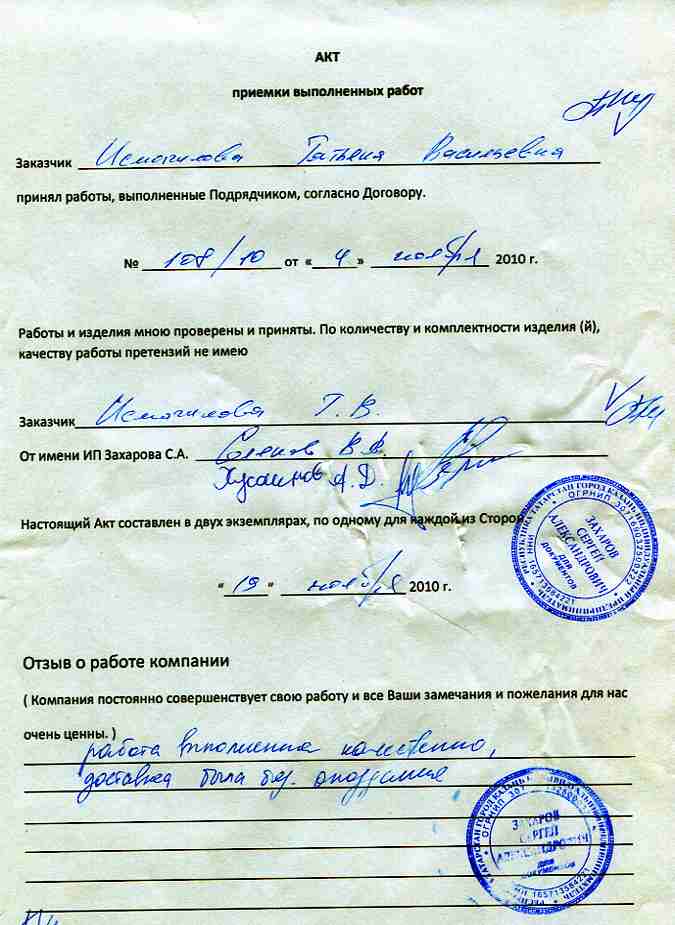 АКТ
приемки выполненных работ
Заказчик Исмагилова Татьяна Васильевна
принял работы, выполненные Подрядчиком, согласно Договору.
№ 108/10 от «4» ноября 2010 г.
Работы и изделия мною проверены и приняты. По количеству и комплектности изделия (й),
качеству работы претензий не имею
Заказчик Исмагилова Т. В.
От имени ИП Захарова С.А. В.В.
Хусаинов А. Д.
Настоящий Акт составлен в двух экземплярах, по одному для каждой из Сторон
РЕСПУБЛИКА ТАТАРСТАН ГОРОД КАЗАНЬ ИНДИВИДУАЛЬНЫЙ ПРЕДПРИНИМАТЕЛЬ
ЗАХАРОВ
СЕРГЕЙ
АЛЕКСАНДРОВИЧ
ДЛЯ
ДОКУМЕНТОВ
"19" ноября 2010 г.
Отзыв о работе компании
( Компания постоянно совершенствует свою работу и все Ваши замечания и пожелания для нас
очень ценны. )
работа выполнена качественно,
доставка была без опоздания
ЗАХАРОВ
СЕРГЕЙ
АЛЕКСАНДРОВИЧ
ДЛЯ
ДОКУМЕНТОВ